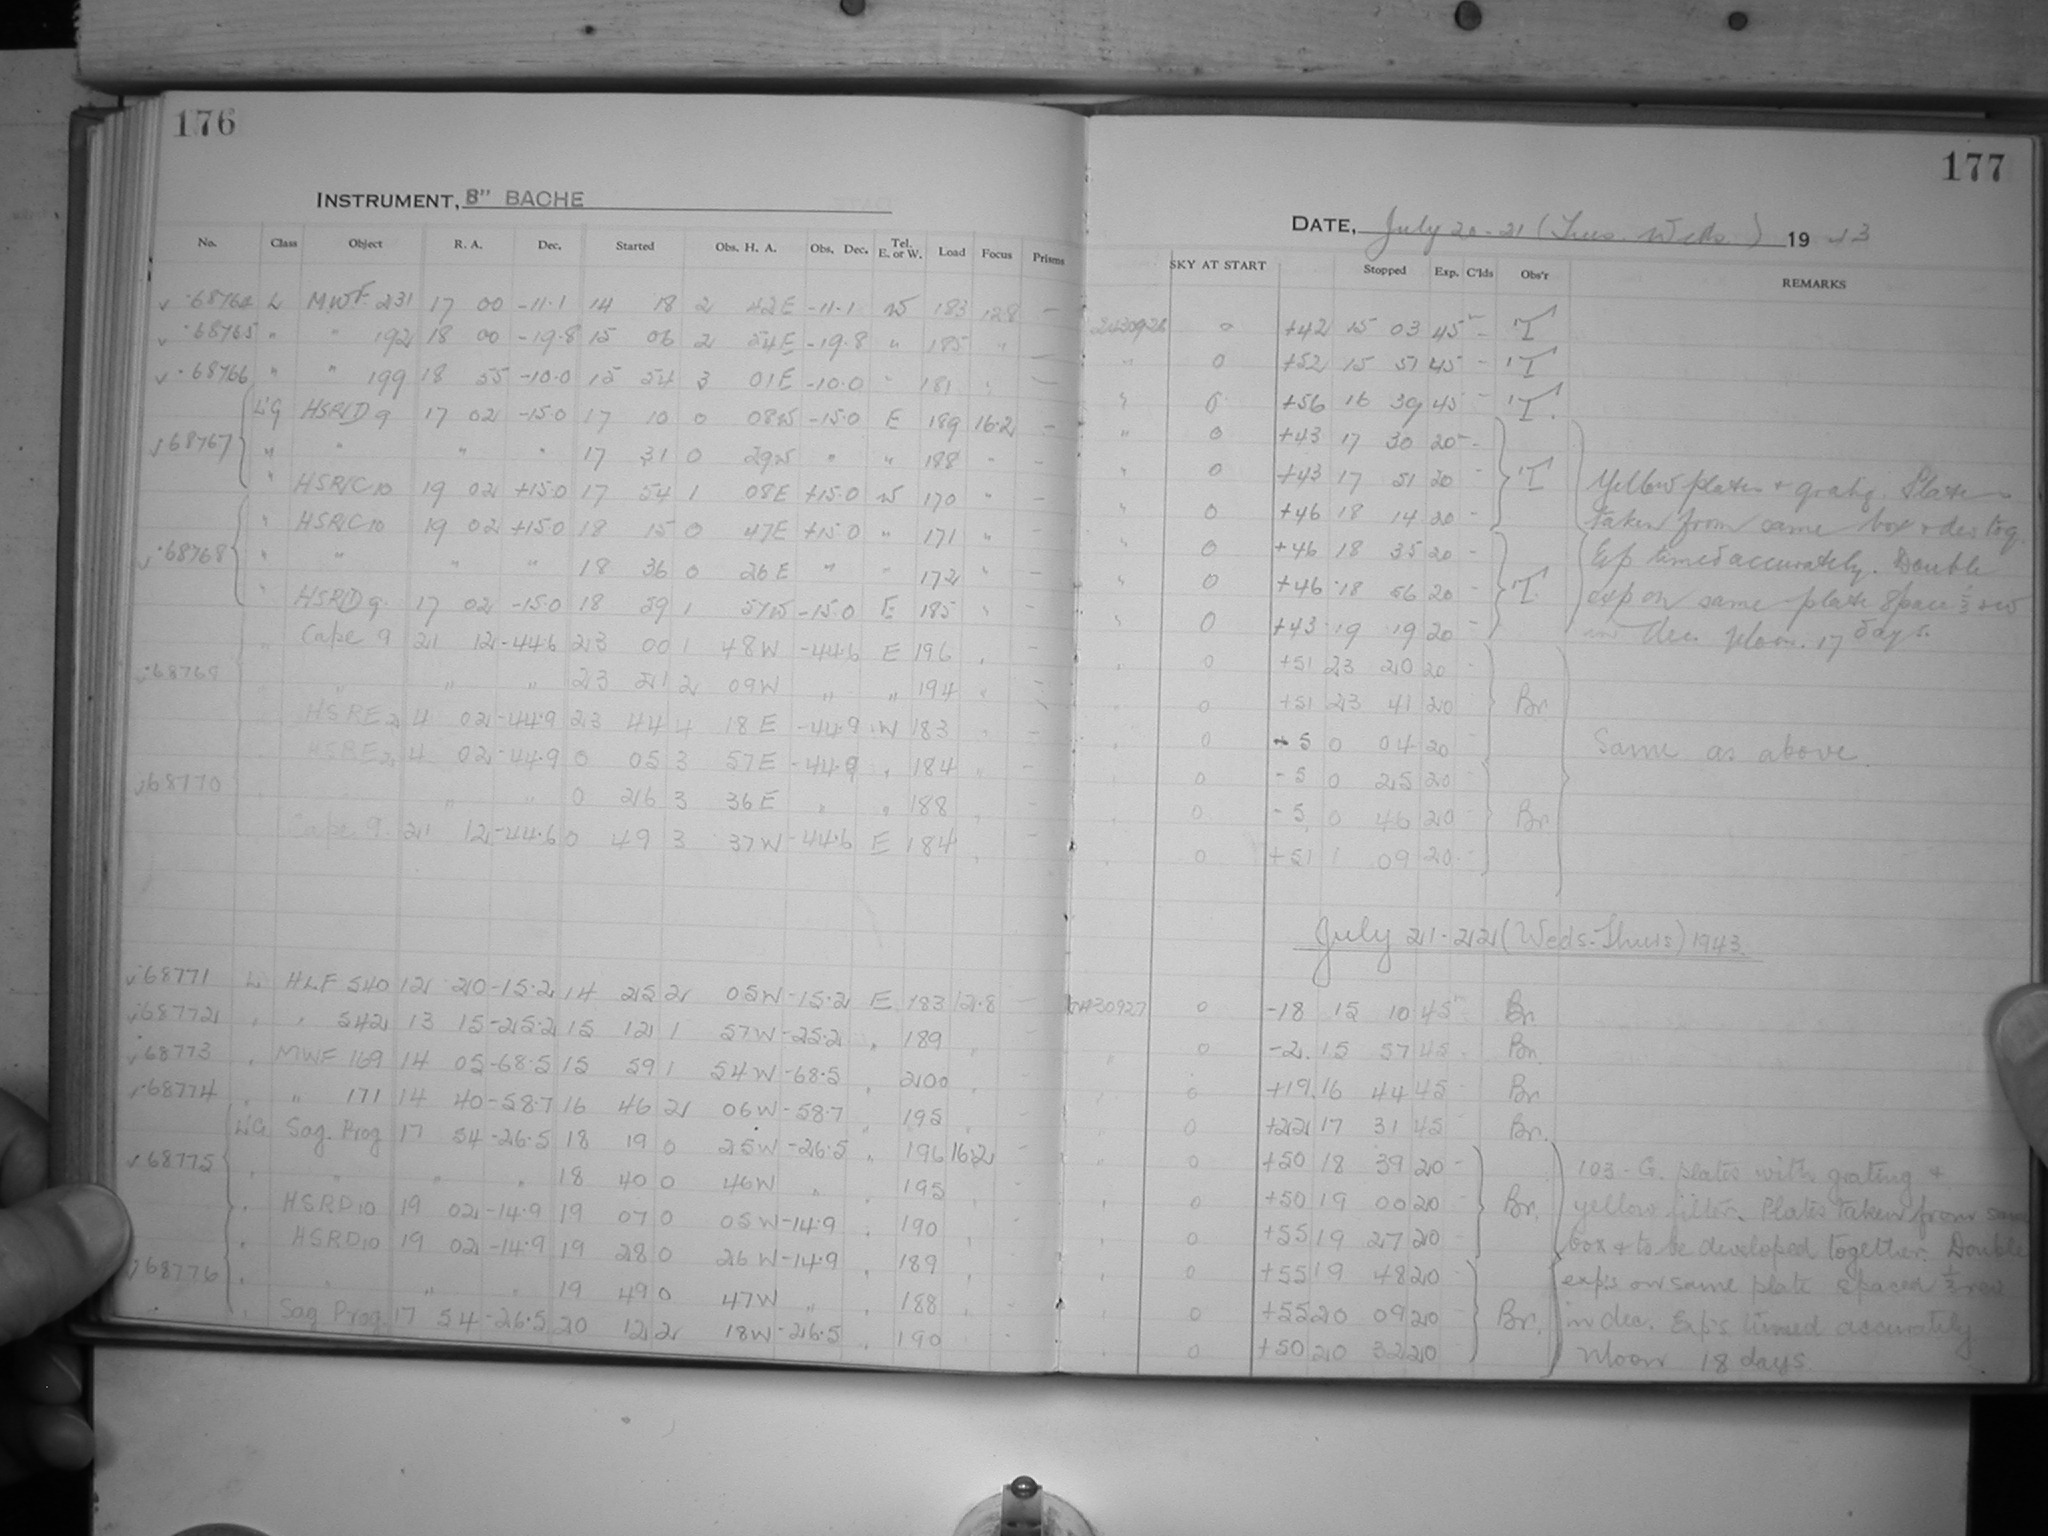 176
177
INSTRUMENT, 8" BACHE
DATE, July 20-21 (Tues. Weds.) 1943
No. Class Object R. A. Dec. Started Obs. H. A. Obs. Dec. Tel. E. or W. Load Focus Prisms SKY AT START Stopped Exp. C'lds Obs'r REMARKS
68764 L MWF 231 17 00 -11.1 14 18 2 42E -11.1 W 183 12.8 - 2430926 0 +42 15 03 45m - T
68765 " " 192 18 00 -19.8 15 06 2 54E -19.8 " 185 " - " 0 +52 15 51 45 - T
68766 " " 199 18 55 -10.0 15 54 3 01E -10.0 " 181 " - " 0 +56 16 39 45 - T
L'G HSR(D9 17 02 -15.0 17 10 0 08W -15.0 E 189 16.2 - " 0 +43 17 30 20m -
68767 " " " " 17 31 0 29W " " 188 " - " 0 +43 17 51 20 - T Yellow plates + gratg. Plates
" HSR(C10 19 02 +15.0 17 54 1 08E +15.0 W 170 " - " 0 +46 18 14 20 - taken from same box + dev tog.
" HSR(C10 19 02 +15.0 18 15 0 47E +15.0 " 171 " - " 0 +46 18 35 20 - Exp timed accurately. Double
68768 " " " " 18 36 0 26E " " 172 " - " 0 +46 18 56 20 - T exp on same plate space 1/3 rev
" HSR(D9 17 02 -15.0 18 59 1 57W -15.0 E 185 " - " 0 +43 19 19 20 - in dec. Moon. 17 days.
Cape 9 21 12 -44.6 23 00 1 48W -44.6 E 196 " - " 0 +51 23 20 20 -
68769 " " " 23 21 2 09W " " 194 " - " 0 +51 23 41 20 Br
HSRE2 4 02 -44.9 23 44 4 18E -44.9 W 183 " - " 0 -5 0 04 20 - Same as above.
HSRE2 4 02 -44.9 0 05 3 57E -44.9 " 184 " - " 0 -5 0 25 20 -
68770 " " " 0 26 3 36E " " 188 " - " 0 -5 0 46 20 - Br
Cape 9 21 12 -44.6 0 49 3 37W -44.6 E 184 " - " 0 +51 1 09 20 -
July 21-22 (Weds-Thurs) 1943
68771 L HLF 540 12 20 -15.2 14 25 2 05W -15.2 E 183 12.8 - 2430927 0 -18 15 10 45m Br.
68772 " " 542 13 15 -25.2 15 12 1 57W -25.2 " 189 " - " 0 -2 15 57 45 - Br.
68773 " MWF 169 14 05 -68.5 15 59 1 54W -68.5 " 200 " - " 0 +19 16 44 45 - Br
68774 " " 171 14 40 -58.7 16 46 2 06W -58.7 " 195 " - " 0 +22 17 31 45 Br.
L'G Sag. Prog 17 54 -26.5 18 19 0 25W -26.5 " 196 16.2 - " 0 +50 18 39 20 - 103-G. plates with grating +
68775 " " " " 18 40 0 46W " " 195 " - " 0 +50 19 00 20 Br. yellow filter. Plates taken from same
" HSRD10 19 02 -14.9 19 07 0 05W -14.9 " 190 " - " 0 +55 19 27 20 - box & to be developed together. Double
" HSRD10 19 02 -14.9 19 28 0 26W -14.9 " 189 " - " 0 +55 19 48 20 - exp's on same plate spaced 1/3 rev
68776 " " " " 19 49 0 47W " " 188 " - " 0 +55 20 09 20 Br. in dec. Exp's timed accurately
" Sag Prog 17 54 -26.5 20 12 2 18W -26.5 " 190 " - " 0 +50 20 32 20 Moon 18 days.